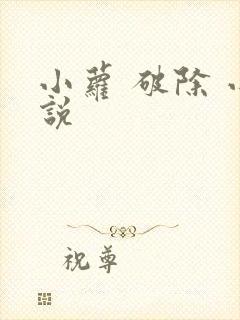 小蘿 破除
說
祝尊